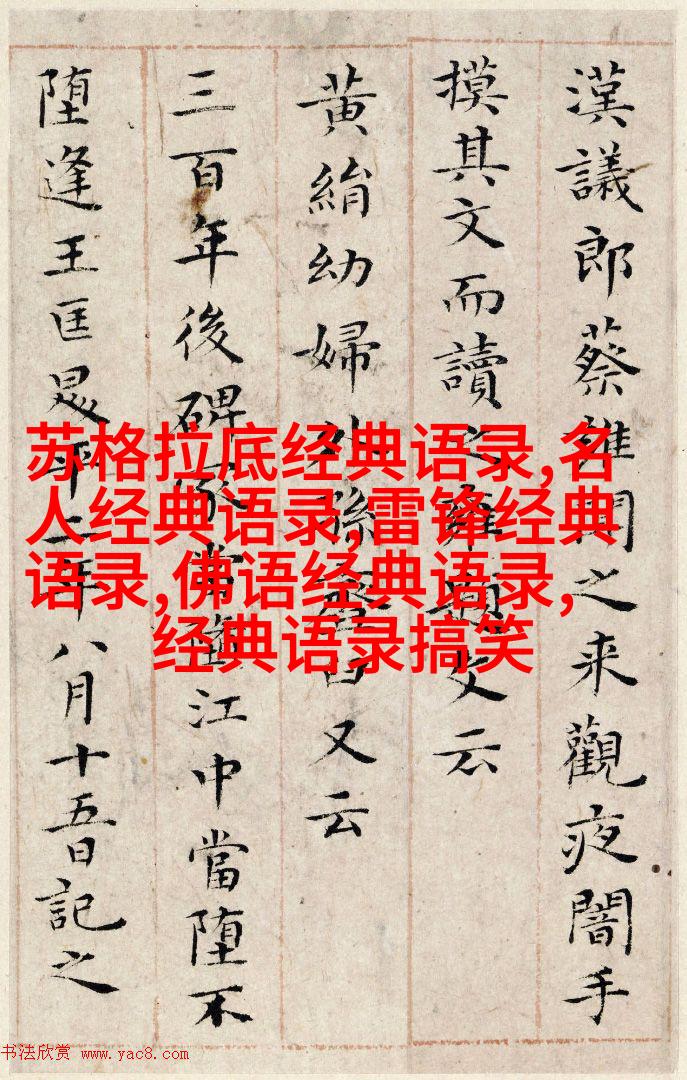 漢議郎蔡雍聞之来觀夜闇手
摸其文而讀之雍題文云
黄絹幼婦外孫臼又云
三百年後碑冢當堕江中當堕不
堕逢王匡昇平二年八月十五日記之
苏格拉底经典语录,名
人经典语录,雷锋经典
语录,佛语经典语录,
经典语录搞笑
书法欣赏 www.yac8.com